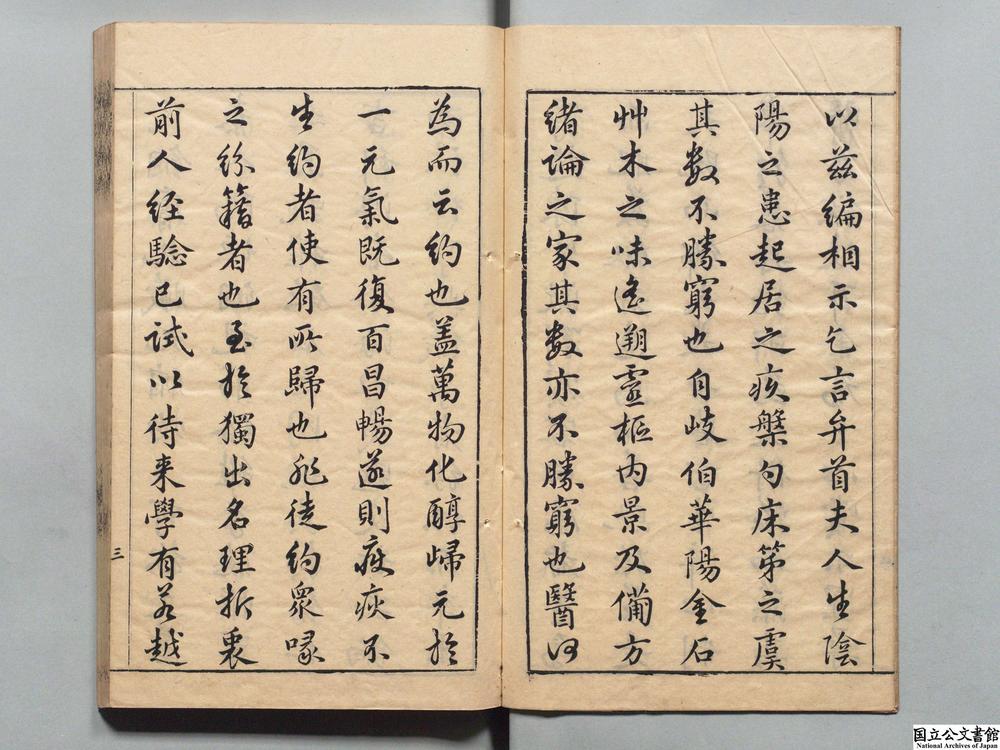 以茲編相示乞言弁首夫人生陰
陽之患起居之疚槃勺床笫之虞
其數不勝窮也自岐伯華陽金石
艸木之味遙遡靈樞內景及備方
緒論之家其數亦不勝窮也醫何
為而云約也盖萬物化醇歸元於
一元氣既復百昌暢遂則疢疾不
生約者使有所歸也非徒約眾喙
之紛籍者也至於獨出名理折衷
前人経驗已試以待来學有若越
三
国立公文書館
National Archives of Japan